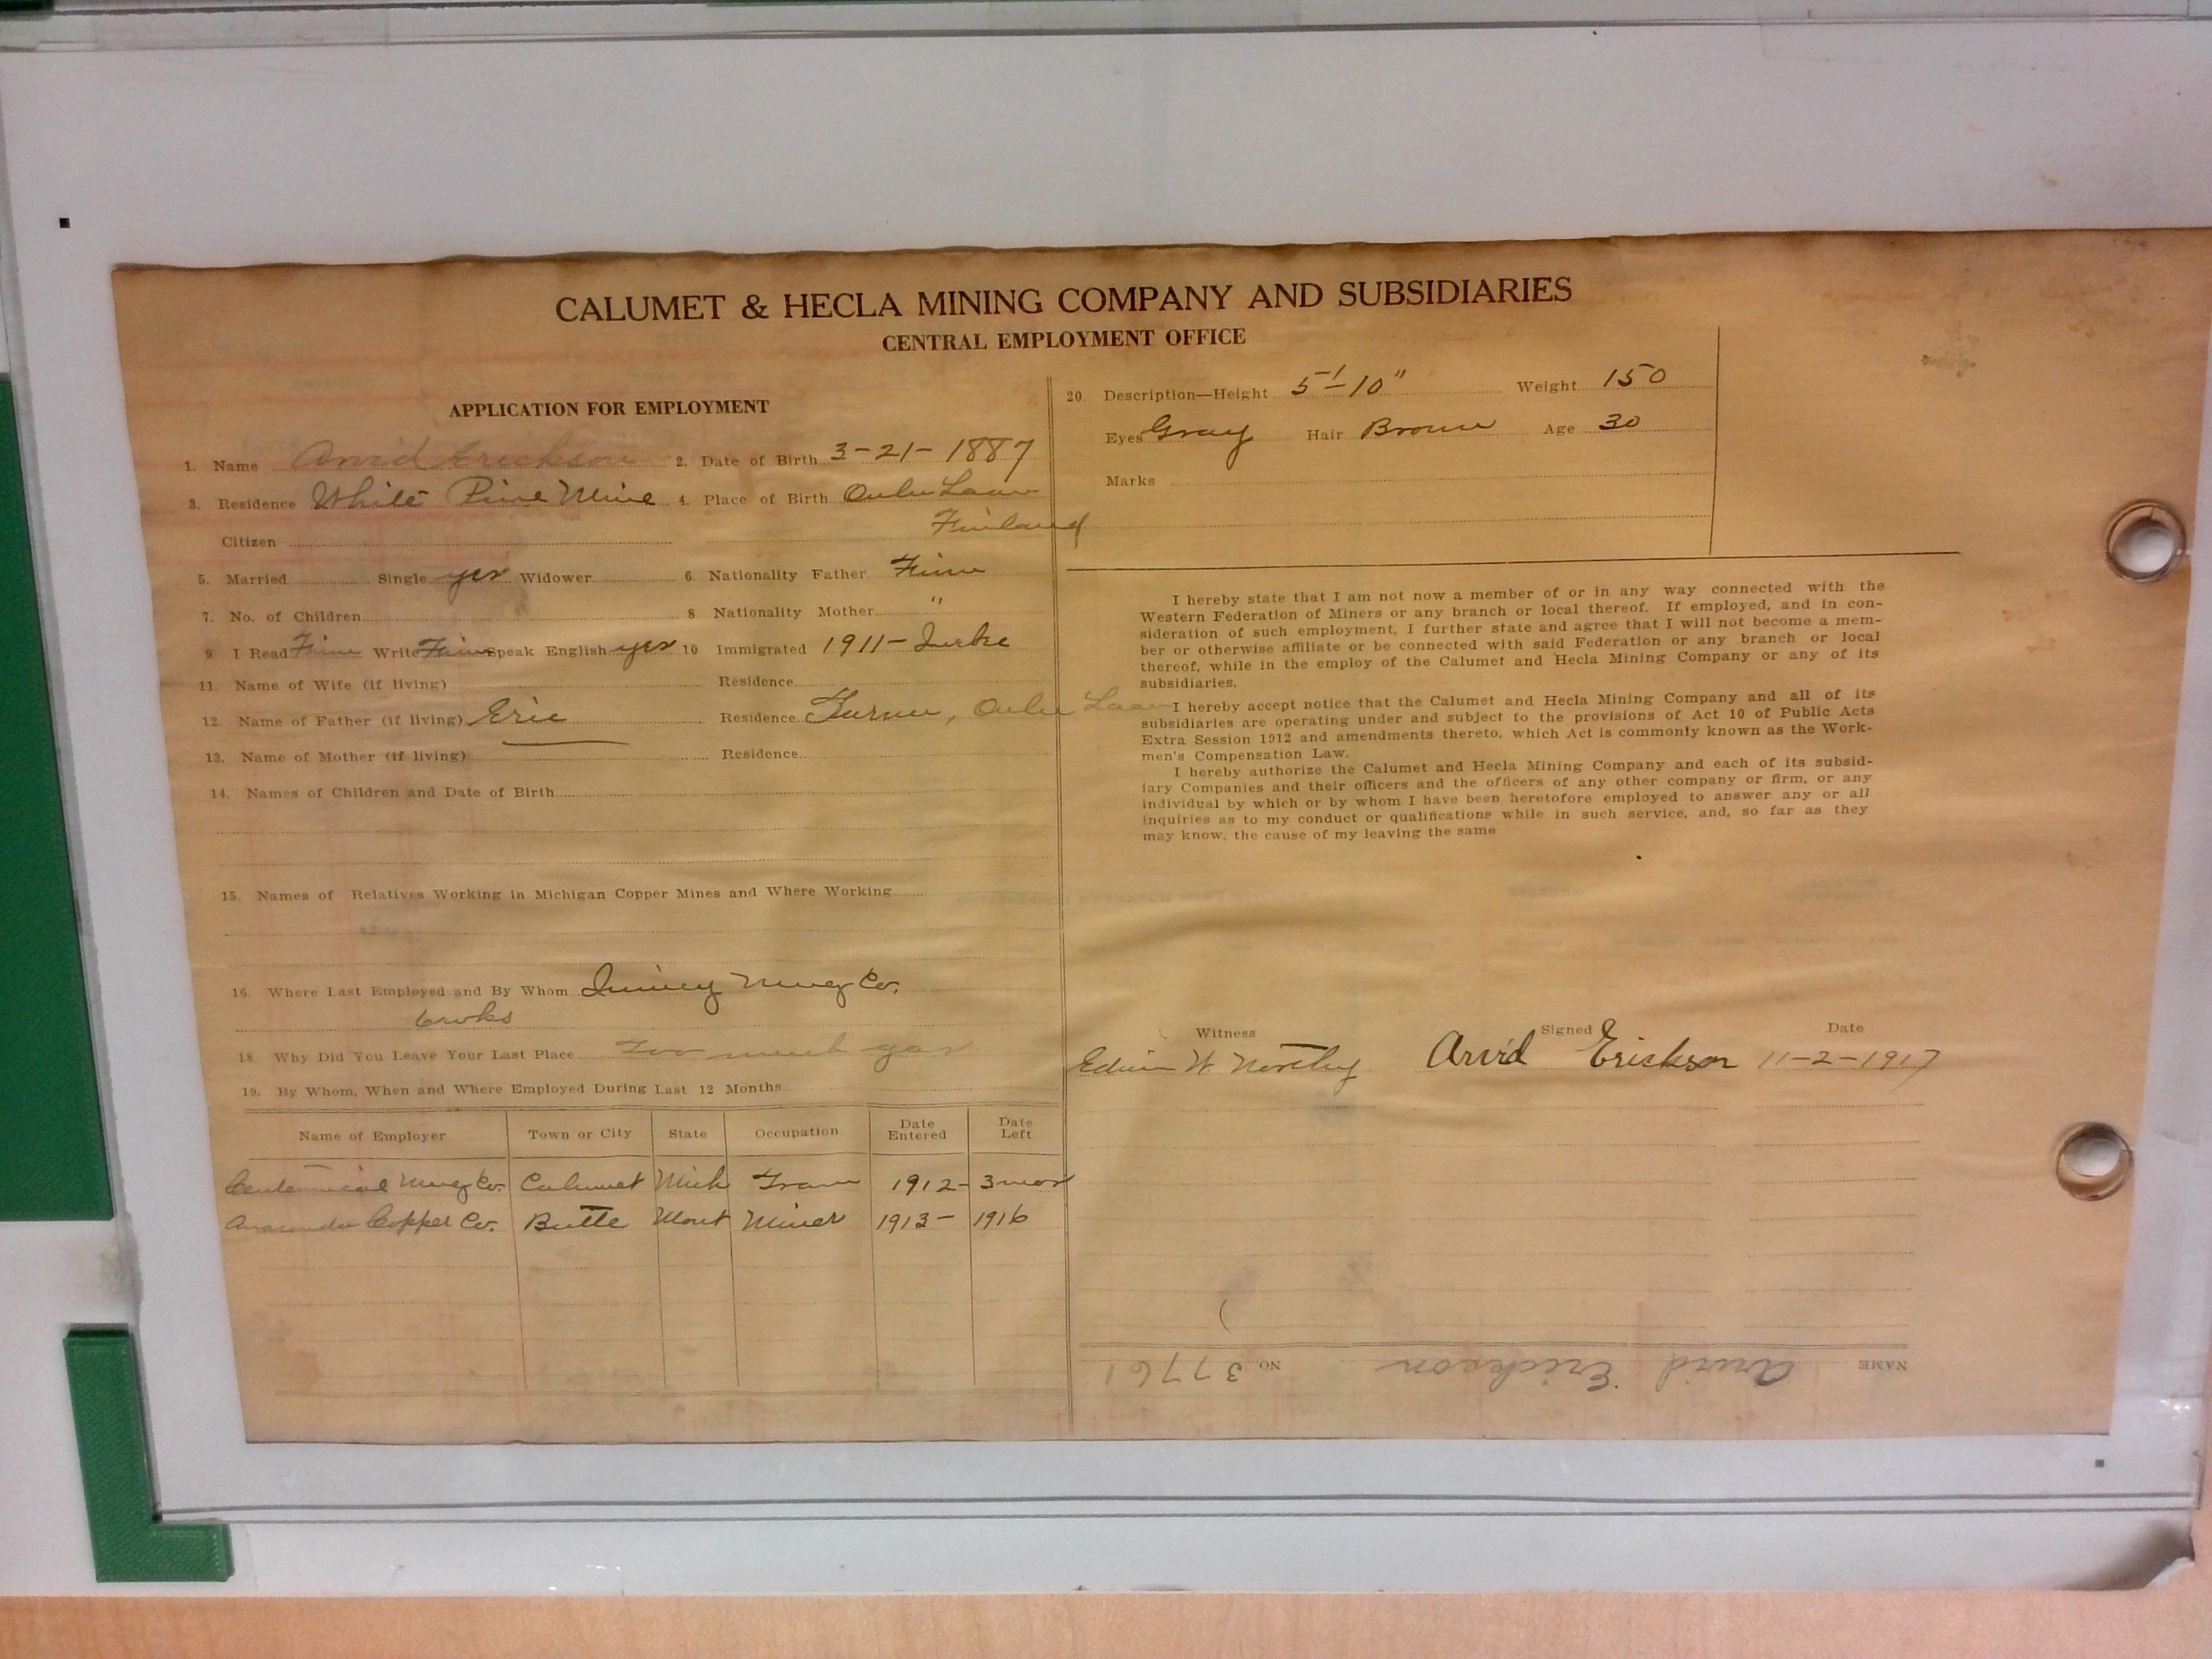 CALUMET & HECLA MINING COMPANY AND SUBSIDIARIES
CENTRAL EMPLOYMENT OFFICE
APPLICATION FOR EMPLOYMENT
1. Name Arvid Erickson 2. Date of Birth 3-21-1887
3. Residence White Pine Mine 4. Place of Birth Oulu Laan
Finland
Citizen
5. Married Single yes Widower 6. Nationality Father Finn
7. No. of Children 8 Nationality Mother "
9 I Read Finn Write Finn Speak English yes 10 Immigrated 1911-
11. Name of Wife (if living) Residence
12. Name of Father (if living) Eric Residence Oulu Laan
13. Name of Mother (if living) Residence
14. Names of Children and Date of Birth
15. Names of Relatives Working in Michigan Copper Mines and Where Working
16. Where Last Employed and By Whom Quincy Mng Co.
6 wks
18. Why Did You Leave Your Last Place Too much gas
19. By Whom, When and Where Employed During Last 12 Months
Name of Employer Town or City State Occupation Date Entered Date Left
Centennial Mng Co. Calumet Mich Tram 1912- 3 mos
Anaconda Copper Co. Butte Mont Miner 1913- 1916
20. Description—Height 5'-10" Weight 150
Eyes Gray Hair Brown Age 30
Marks
I hereby state that I am not now a member of or in any way connected with the
Western Federation of Miners or any branch or local thereof. If employed, and in con-
sideration of such employment, I further state and agree that I will not become a mem-
ber or otherwise affiliate or be connected with said Federation or any branch or local
thereof, while in the employ of the Calumet and Hecla Mining Company or any of its
subsidiaries.
I hereby accept notice that the Calumet and Hecla Mining Company and all of its
subsidiaries are operating under and subject to the provisions of Act 10 of Public Acts
Extra Session 1912 and amendments thereto, which Act is commonly known as the Work-
men's Compensation Law.
I hereby authorize the Calumet and Hecla Mining Company and each of its subsid-
iary Companies and their officers and the officers of any other company or firm, or any
individual by which or by whom I have been heretofore employed to answer any or all
inquiries as to my conduct or qualifications while in such service, and, so far as they
may know, the cause of my leaving the same
Witness Signed Date
Edwin W. Northey Arvid Erickson 11-2-1917
NAME Arvid Erickson NO 37761